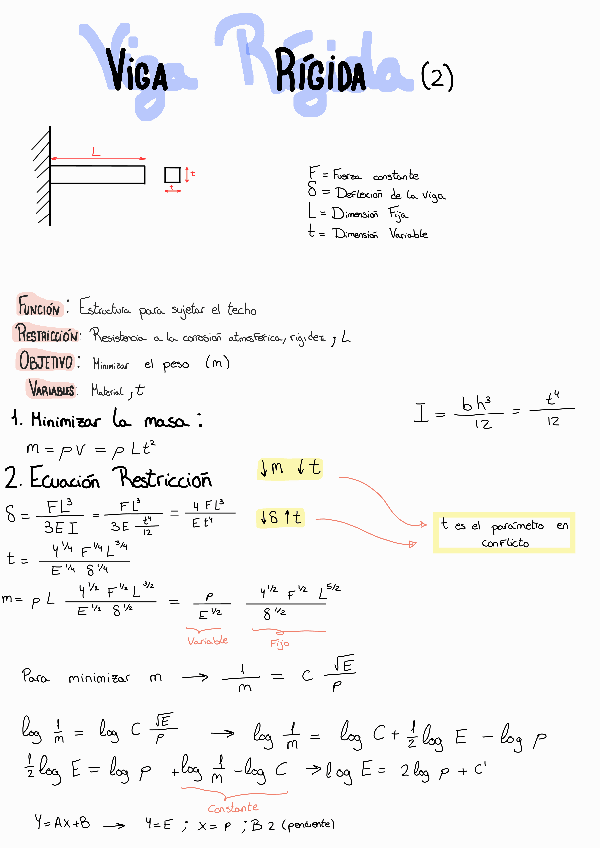 Viga Rígida
VIGA RÍGIDA (2)
L
t
t
F = Fuerza constante
δ = Deflexión de la viga
L = Dimensión Fija
t = Dimensión Variable
FUNCIÓN: Estructura para sujetar el techo
RESTRICCIÓN: Resistencia a la corrosión atmosférica, rigidez, L
OBJETIVO: Minimizar el peso (m)
VARIABLES: Material, t
I = bh³/12 = t⁴/12
1. Minimizar la masa:
m = ρV = ρLt²
2. Ecuación Restricción
↓m ↓t
δ = FL³/3EI = FL³/(3E t⁴/12) = 4FL³/Et⁴
↓δ ↑t
t es el parámetro en
conflicto
t = 4^1/4 F^1/4 L^3/4 / E^1/4 δ^1/4
m = ρL 4^1/2 F^1/2 L^3/2 / E^1/2 δ^1/2 = ρ/E^1/2 4^1/2 F^1/2 L^5/2 / δ^1/2
Variable Fijo
Para minimizar m → 1/m = C √E/ρ
log 1/m = log C √E/ρ → log 1/m = log C + 1/2 log E - log ρ
1/2 log E = log ρ + log 1/m - log C → log E = 2 log ρ + C'
Constante
Y=AX+B → Y=E ; X=ρ ; B 2 (pendiente)